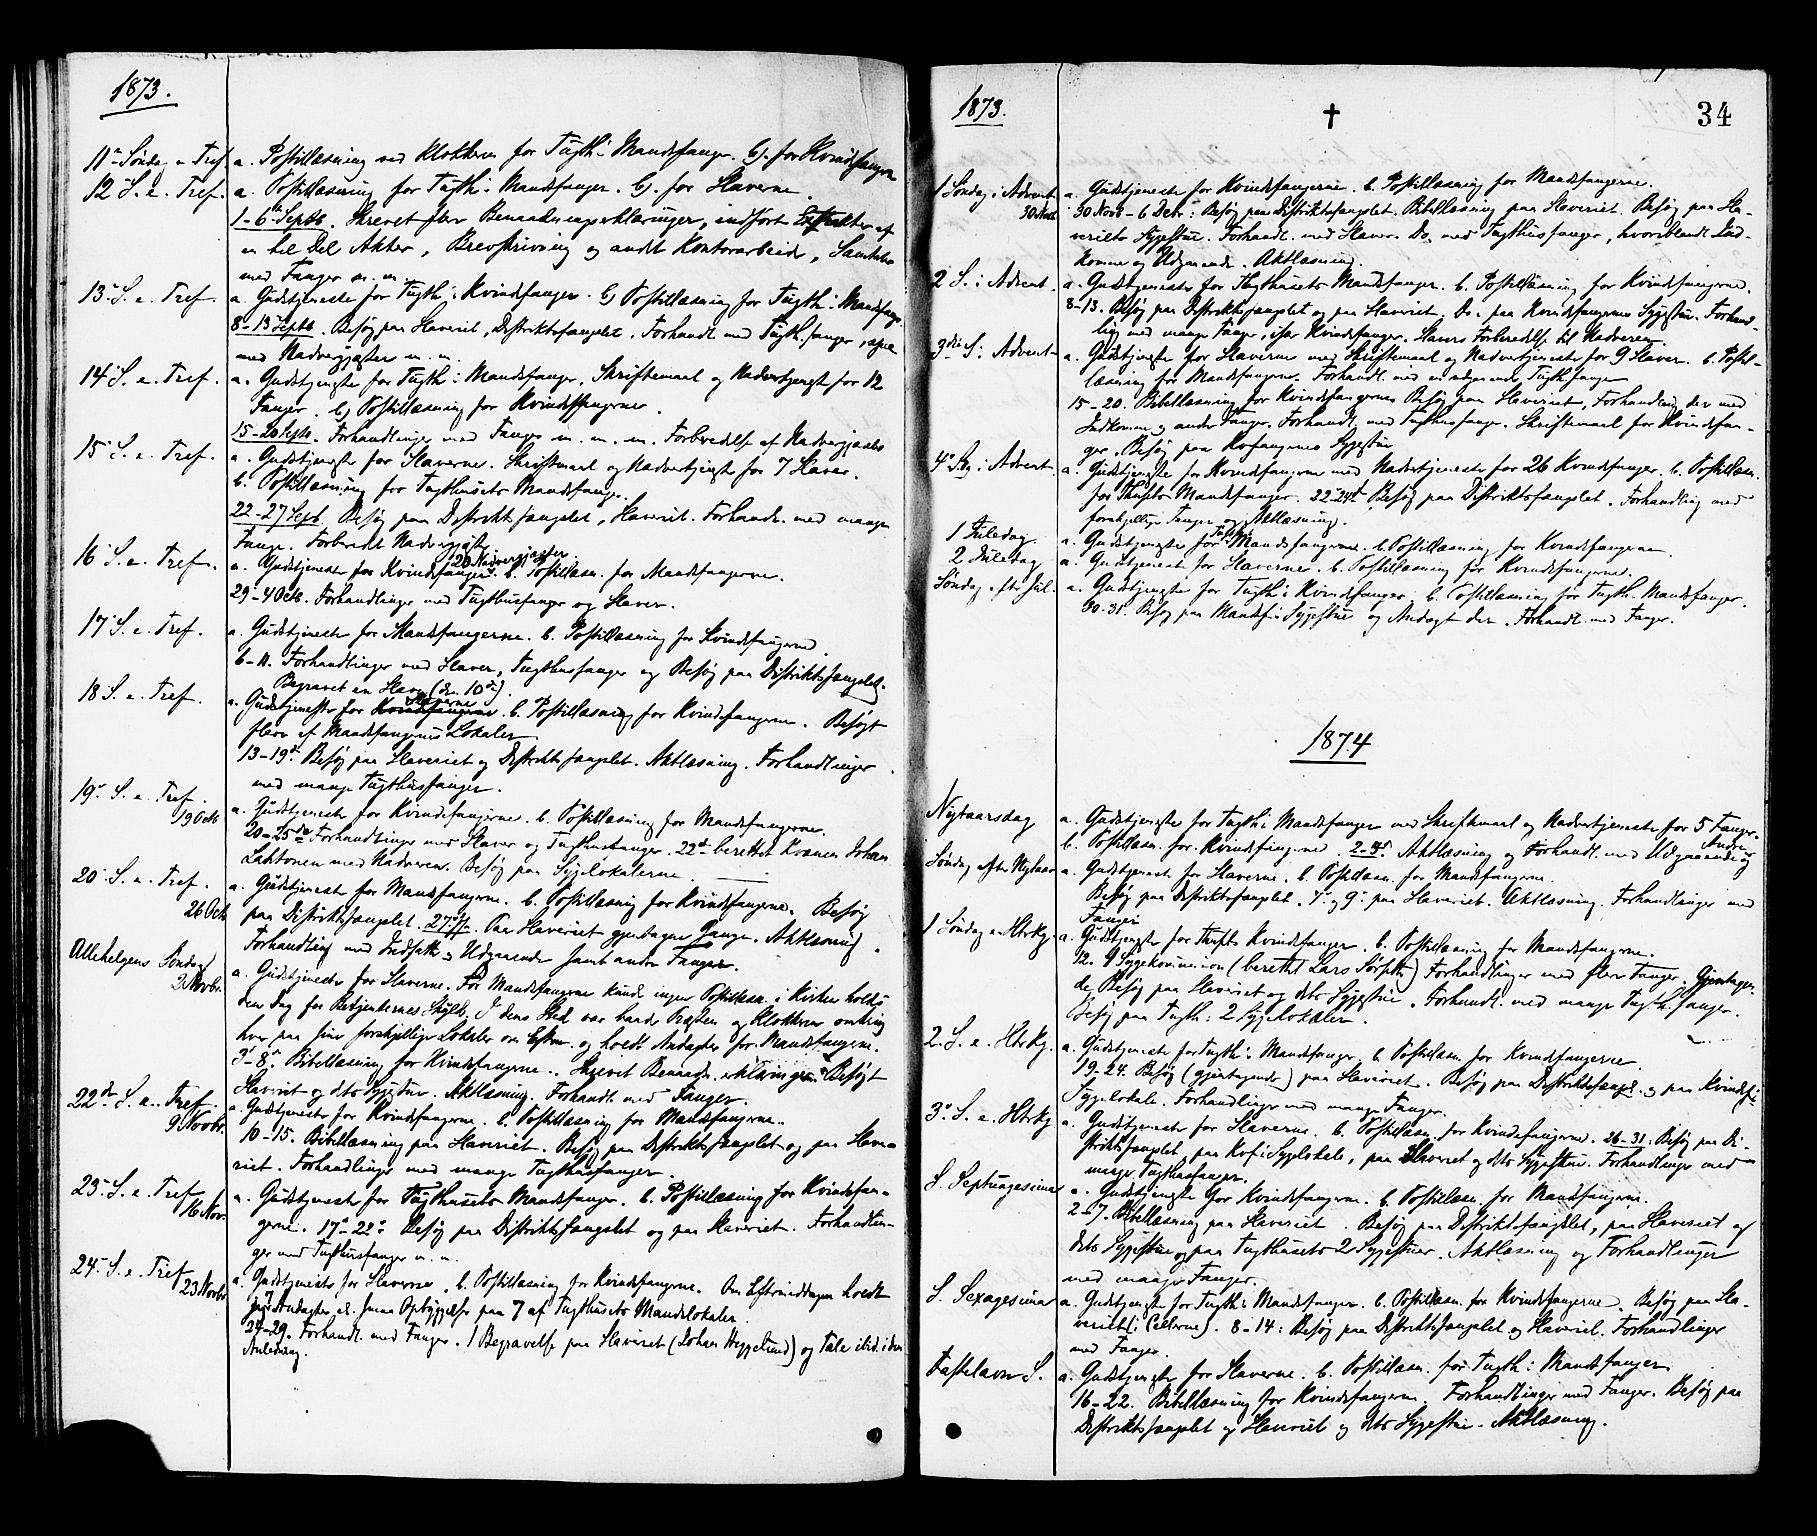 1873.
11te Søndag e. Tref. a. Postillæsning ved Klokkeren for Tugth: Mandsfanger. b). for Kvindefanger
12 S. e. Tref. a. Postillæsning for Tugth: Mandsfanger. b). for Slaverne.
1-6te Septb. Skrevet flere Benaadningserklæringer, indført af
en hel Del Akter, Brevskrivning og andet Kontorarbeide, Samtaler
med Fanger m. m.
13 S. e. Tref. a. Gudstjeneste for Tugth: Kvindefanger. b) Postillæsning for Tugth: Mandsfang.
8-13 Septb. Besøg paa Slaveriet, Distriktsfængslet. Forhandl. med Tugth.fanger, 
med Nadvergjæster m. m.
14 S. e. Tref. a. Gudstjeneste for Tugth: Mandsfanger, Skriftemaal og Nadvertjenest for 12
Fanger. b) Postillæsning for Kvindefangerne.
15-20 Septb. Forhandlinger med Fanger m. m. Forberedelse af Nadvergjæster
15 S. e. Tref. a. Gudstjeneste for Slaverne. Skriftemaal og Nadvertjenest for 7 Slaver.
b. Postillæsning for Tugthusets Mandsfanger.
22-27 Septb. Besøg paa Distriktsfængslet, Slaveriet. Forhandl. med mange
Fanger. Forberedt Nadvergjæster.
20 Nadvergjæster.
16 S. e. Tref. a. Gudstjeneste for Kvindefanger. b. Postillæsn. for Mandsfangerne.
29-4 Octb. Forhandlinger med Tugthusfanger og Slaver.
17 S. e. Tref. a. Gudstjeneste for Mandsfangerne. b. Postillæsning for Kvindefangerne.
6-11. Forhandlinger med Slaver, Tugthusfanger og Besøg paa Distriktsfængslet.
Begravet en Slave (den 10de).
Slaverne
18 S. e. Tref. a. Gudstjeneste for Kvindefangerne. b. Postillæsning for Kvindefangerne. Besøgt
flere af Mandsfangernes Lokaler.
13-19de Besøg paa Slaveriet og Distriktsfængslet. Aktlæsning. Forhandlinger
med mange Tugthusfanger.
19 S. e. Tref. a. Gudstjeneste for Kvindefangerne. b. Postillæsning for Mandsfangerne.
19 Octb 20-25de Forhandlinger med Slaver og Tugthusfanger. 22de berettet Kvænen Johan
Lahtonen med Nadveren. Besøg paa Sygelokalerne.
20 S. e. Tref. a. Gudstjeneste for Mandsfangerne. b. Postillæsning for Kvindefangerne. Besøg
26 Octb paa Distriktsfængslet. 27 ff. Paa Slaveriet gjentagne Gange. Aktlæsning.
Forhandling med Indsatte og Udgaaende samt andre Fanger.
Allehelgens Søndag a. Gudstjeneste for Slaverne. For Mandsfangerne kunde ingen Postillæsn. i Kirken holdes
2 Novbr. den Dag for Betjenternes Skyld. I dens Sted var baade Præsten og Klokkeren omkring
hver paa sine forskjellige Lokaler om Efterm. og holdt Andagter for Mandsfangerne.
3-8. Bibellæsning for Kvindefangerne. Skrevet Benaadn. erklæringer. Besøgt
Slaveriet og dets Sygestue. Aktlæsning. Forhandl. med Fanger.
22de S. e. Tref. a. Gudstjeneste for Kvindefangerne. b. Postillæsning for Mandsfangerne.
9 Novbr. 10-15. Bibellæsning paa Slaveriet. Besøg paa Distriktsfængslet og paa Slave-
riet. Forhandlinger med mange Tugthusfanger.
23 S. e. Tref. a. Gudstjeneste for Tugthusets Mandsfanger. b. Postillæsning for Kvindefan-
16 Nov. gerne. 17-22: Besøg paa Distriktsfængslet og paa Slaveriet. Forhandlin-
ger med Tugthusfanger m. m.
24 S. e. Tref a. Gudstjeneste for Slaverne. b. Postillæsning for Kvindefangerne. Om Eftermiddagen holdt
23 Novbr 7 Andagter el. smaa Opbyggelser paa 7 af Tugthusets Mandslokaler.
24-29. Forhandl. med Fanger. 1 Begravelse paa Slaveriet (Johan Heggelund) og Tale ibid. i den
Anledning.
1873. † 34
1 Søndag i Advent a. Gudstjeneste for Kvindefangerne. b. Postillæsning for Mandsfangerne.
30 Novb. 30 Novb - 6 Decbr: Besøg paa Distriktsfængslet. Bibellæsning paa Slaveriet. Besøg paa Sla-
veriets Sygestue. Forhandl. med Slaver. Do. med Tugthusfanger, hvoriblandt Ind-
komne og Udgaaende. Aktlæsning.
2 S. i Advent. a. Gudstjeneste for Tugthusets Mandsfanger. b. Postillæsning for Kvindefangerne.
8-13. Besøg paa Distriktsfængslet og paa Slaveriet. Do. paa Kvindefangernes Sygestue. Forhand-
ling med mange Fanger, især Kvindefanger. Slavers Forberedelse til Nadveren.
3die S. i Advent a. Gudstjeneste for Slaverne med Skriftemaal og Nadvertjeneste for 9 Slaver. b. Postil-
læsning for Mandsfangerne. Forhandl. med en udgaaende Tugth.fange
15-20. Bibellæsning for Kvindefangerne. Besøg paa Slaveriet, Forhandling der med
Indkomne og andre Fanger. Forhandl. med Tugthusfanger. Skriftemaal for Kvindefan-
ger. Besøg paa Kvfangernes Sygestue
4 Sg. i Advent a. Gudstjeneste for Kvindefangerne med Nadvertjeneste for 26 Kvindefanger. b. Postillæsn.
for Thusets Mandsfanger. 22-24de Besøg paa Distriktsfængslet. Forhandling med
forskjellige Fanger og Aktlæsning.
1 Juledag. a. Gudstjeneste for Mandsfangerne. b. Postillæsning for Kvindefangerne.
2 Juledag a. Gudstjeneste for Slaverne. b. Postillæsning for Kvindefangerne.
Søndag eftr Jul. a. Gudstjeneste for Tugth: Kvindefanger. b. Postillæsning for Tugth. Mandsfanger.
30-31. Besøg paa Mandsf: Sygestue og Andagt der. Forhandl. med Fanger.
1874
Nytaarsdag a. Gudstjeneste for Tugth: Mandsfanger med Skriftemaal og Nadvertjeneste for 5 Fanger.
b. Postillæsn. for Kvindefangerne. 2-3die Aktlæsning og Forhandl. med Udgaaende og
Andre
Søndag efter Nytaar a. Gudstjenest for Slaverne. b. Postillæsn. for Mandsfangerne.
Besøg paa Distriktsfængslet. 7 og 9 paa Slaveriet. Aktlæsning. Forhandlinger med
Fanger.
1 Søndag e. Htrkg. a. Gudstjeneste for Thusets Kvindefanger. b. Postillæsning for Mandsfangerne.
12. Sygekommunion (berettet Lars ) Forhandlinger med flere Fanger. Gjentagen-
de Besøg paa Slaveriet og dets Sygestue. Forhandl. med mange Tugth.fanger.
Besøg paa Tugth: 2 Sygelokaler.
2. S. e. Htrkg. a. Gudstjeneste for Tugth: Mandsfanger. b. Postillæsn. for Kvindefangerne.
19-24. Besøg (gjentagende) paa Slaveriet. Besøg paa Distriktsfængsl. og paa Kvindef:
Sygelokale. Forhandlinger med mange Fanger.
3 S. e. Htrkg a. Gudstjeneste for Slaverne. b. Postillæsn. for Kvindefangerne. 26-31: Besøg paa Di-
striktsfængslet, paa Kvf: Sygelokale, paa Slaveriet og dets Sygestue. Forhandlinger med
mange Tugthusfanger.
S. Septuagesima a. Gudstjeneste for Kvindefangerne. b. Postillæsn. for Mandsfangerne.
2-7. Bibellæsning paa Slaveriet. Besøg paa Distriktsfængslet, paa Slaveriet og
dets Sygestue og paa Tugthusets 2 Sygestuer. Aktlæsning og Forhandlinger
med mange Fanger.
S. Sexagesima a. Gudstjeneste for Tugth: Mandsfanger. b. Postillæsn. for Kvindefangerne. Besøg paa Sla-
veriet (i Cellerne). 8-14: Besøg paa Distriktsfængslet og Slaveriet. Forhandlinger
med Fanger.
Fastelavns S. a. Gudstjeneste for Slaverne. b. Postillæsn. for Tugth: Mandsfanger.
16-22. Bibellæsning for Kvindefangerne. Forhandlinger med Fanger. Besøg paa
Distriktsfængslet og Slaveriet og dets Sygestue. Aktlæsning.